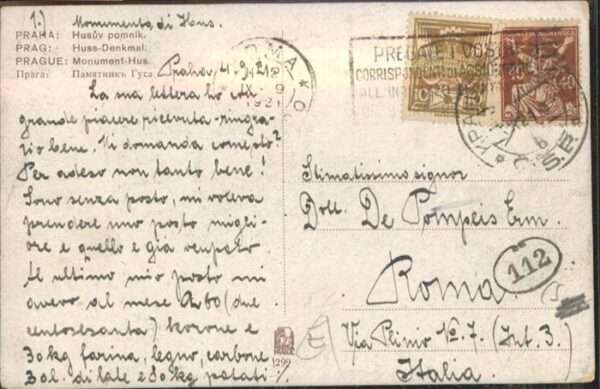 1.) Monumento di Hus.
PRAHA: Husův pomník.
PRAG: Huss-Denkmal.
PRAGUE: Monument-Hus.
Прага: Памятникъ Гуса.
Praha, 4.9.21
La sua lettera ho
grande piacere ricevuta - ringra-
zio bene. Vi domanda come sto?
Per adeso non tanto bene!
Sono senza posto, mi voleva
prendere uno posto miglio-
ore e quello e gia
Il ultimo mio posto mi
avevo al mese 260 (due
centosesanta) korone e
30 kg farina, legno, carbone
30 l. di late e 80 kg patati
1299
ROMA
1921
PREGATE I VOSTRI
CORRISPONDENTI DI
40
Stimatissimo signor
Dott. De Pompeis Erm.
Roma
112
Via Plinio No. 7. (Int. 3.)
Italia.